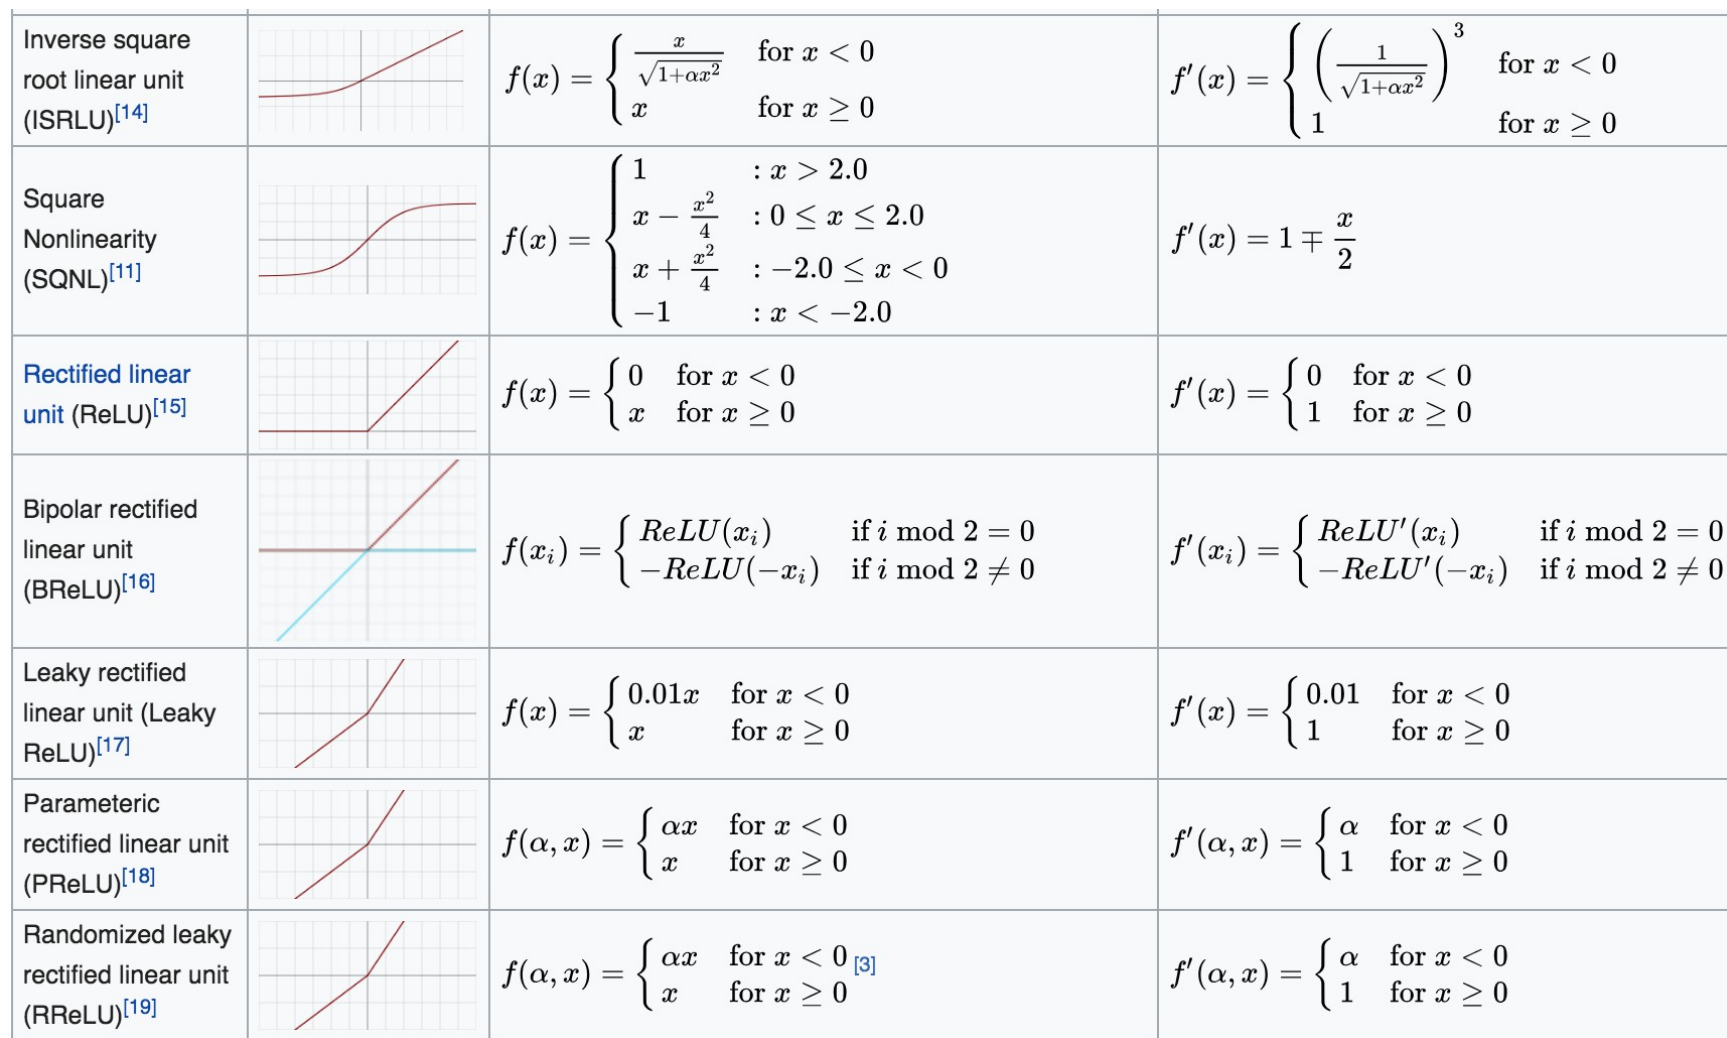 Inverse square
root linear unit
(ISRLU)[14]
f(x) = { x/√(1+αx²) for x < 0
x for x ≥ 0
f′(x) = { (1/√(1+αx²))³ for x < 0
1 for x ≥ 0
Square
Nonlinearity
(SQNL)[11]
f(x) = { 1 : x > 2.0
x − x²/4 : 0 ≤ x ≤ 2.0
x + x²/4 : −2.0 ≤ x < 0
−1 : x < −2.0
f′(x) = 1 ∓ x/2
Rectified linear
unit (ReLU)[15]
f(x) = { 0 for x < 0
x for x ≥ 0
f′(x) = { 0 for x < 0
1 for x ≥ 0
Bipolar rectified
linear unit
(BReLU)[16]
f(xᵢ) = { ReLU(xᵢ) if i mod 2 = 0
−ReLU(−xᵢ) if i mod 2 ≠ 0
f′(xᵢ) = { ReLU′(xᵢ) if i mod 2 = 0
−ReLU′(−xᵢ) if i mod 2 ≠ 0
Leaky rectified
linear unit (Leaky
ReLU)[17]
f(x) = { 0.01x for x < 0
x for x ≥ 0
f′(x) = { 0.01 for x < 0
1 for x ≥ 0
Parameteric
rectified linear unit
(PReLU)[18]
f(α, x) = { αx for x < 0
x for x ≥ 0
f′(α, x) = { α for x < 0
1 for x ≥ 0
Randomized leaky
rectified linear unit
(RReLU)[19]
f(α, x) = { αx for x < 0 [3]
x for x ≥ 0
f′(α, x) = { α for x < 0
1 for x ≥ 0